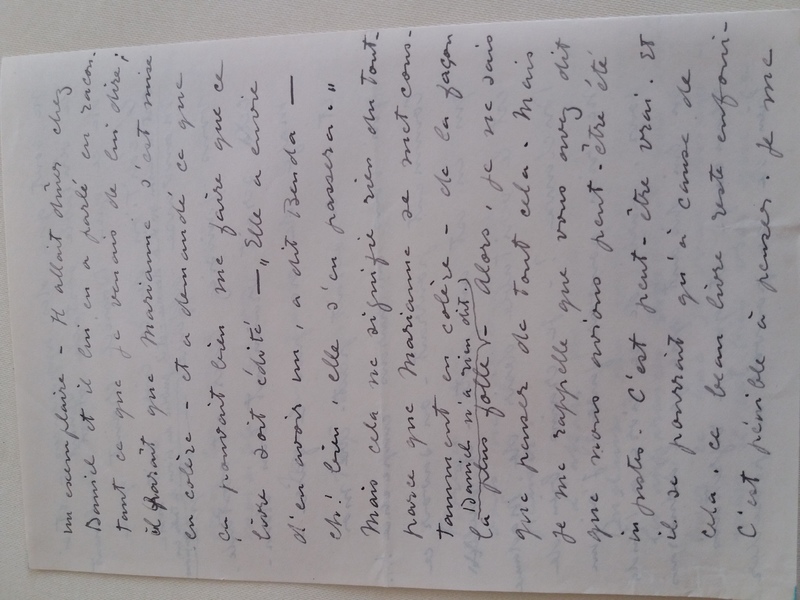 un exemplaire – Il allait dîner chez
Daniel et il lui en a parlé en racon-
tant ce que je venais de lui dire ;
il paraît que Marianne s'est mise
en colère – et a demandé ce que
ça pouvait bien me faire que ce
livre soit édité – „ Elle a envie
d'en avoir un, a dit Benda —
eh ! bien, elle s'en passera. "
Mais cela ne signifie rien du tout –
parce que Marianne se met cons-
tamment en colère – de la façon
(Daniel n'a rien dit.)
la plus folle – Alors, je ne sais
que penser de tout cela. Mais
je me rappelle que vous avez dit
que nous avions peut-être été
injustes. C'est peut-être vrai. Et
il se pourrait qu'à cause de
cela, ce beau livre reste enfoui –
C'est pénible à penser. Je me